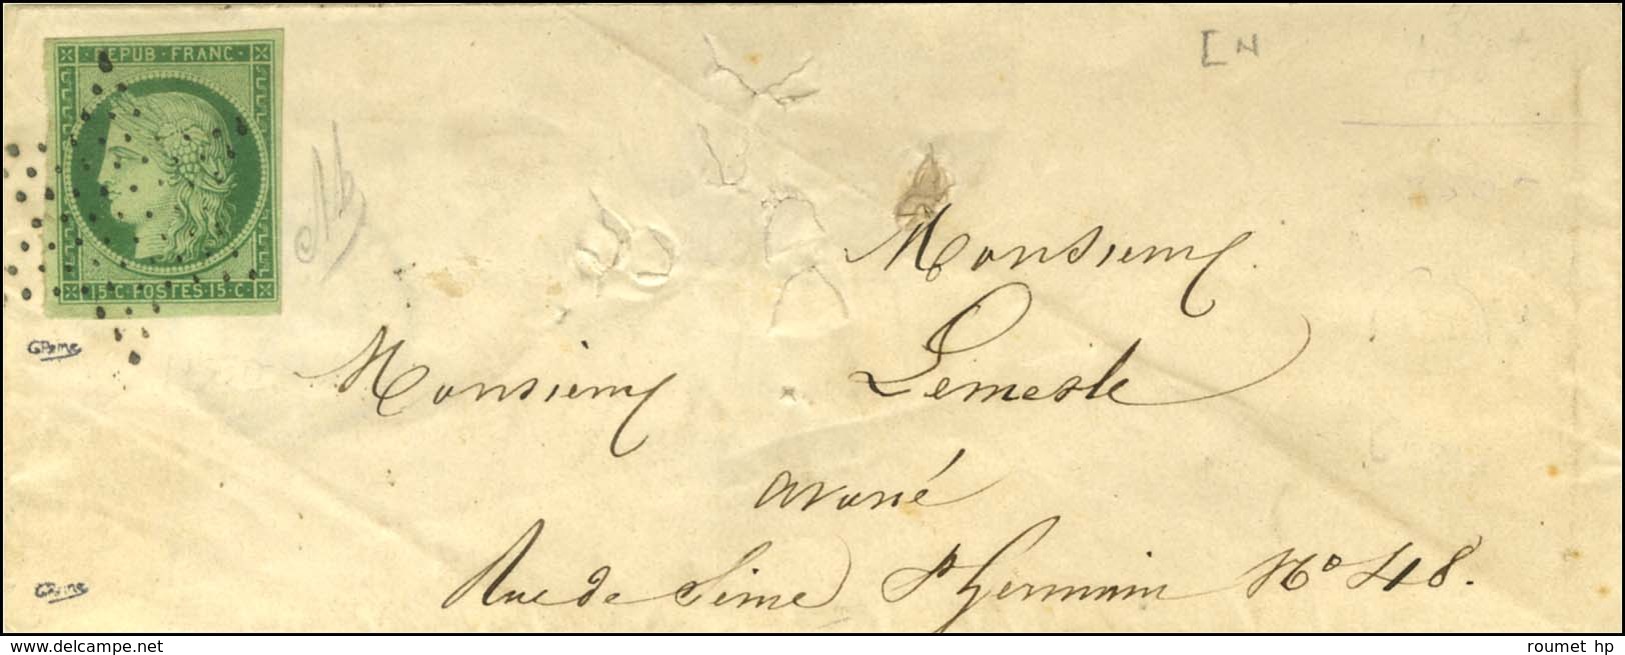 REPUB · FRANC ·
15·C·POSTES·15·C
[ N
Monsieur
Monsieur Lemesle
avoué
Rue de Seine St Germain No 48.
delcampe.net
roumet hp